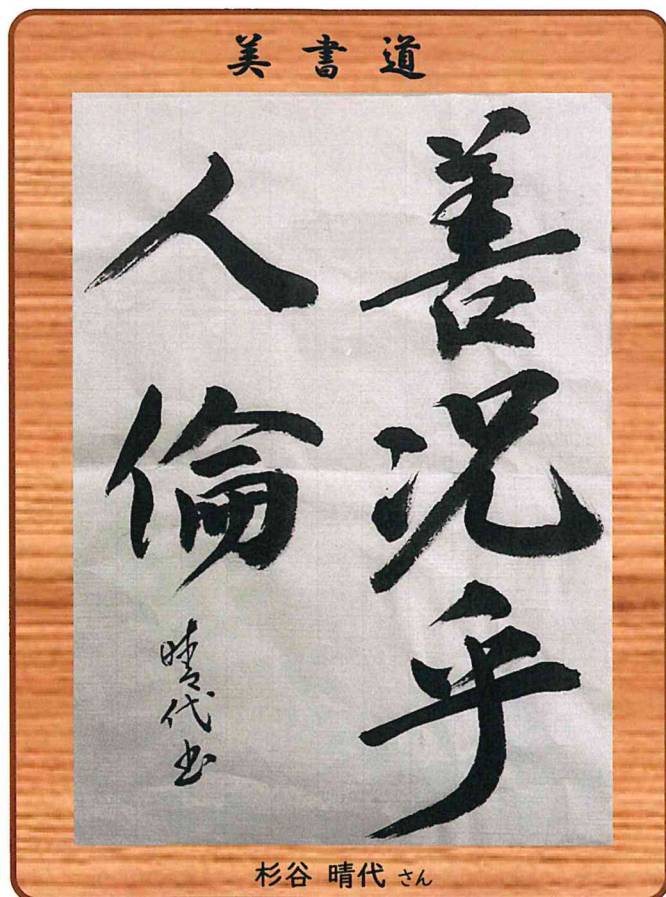 美書道
善況乎
人倫
晴代书
杉谷 晴代 さん